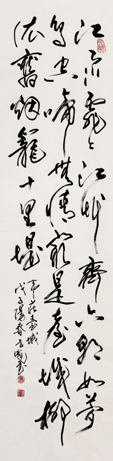 江雨霏霏江草齊六朝如夢
鳥空啼無情最是臺城柳
依舊烟籠十里堤
韋莊臺城
戊子陽春